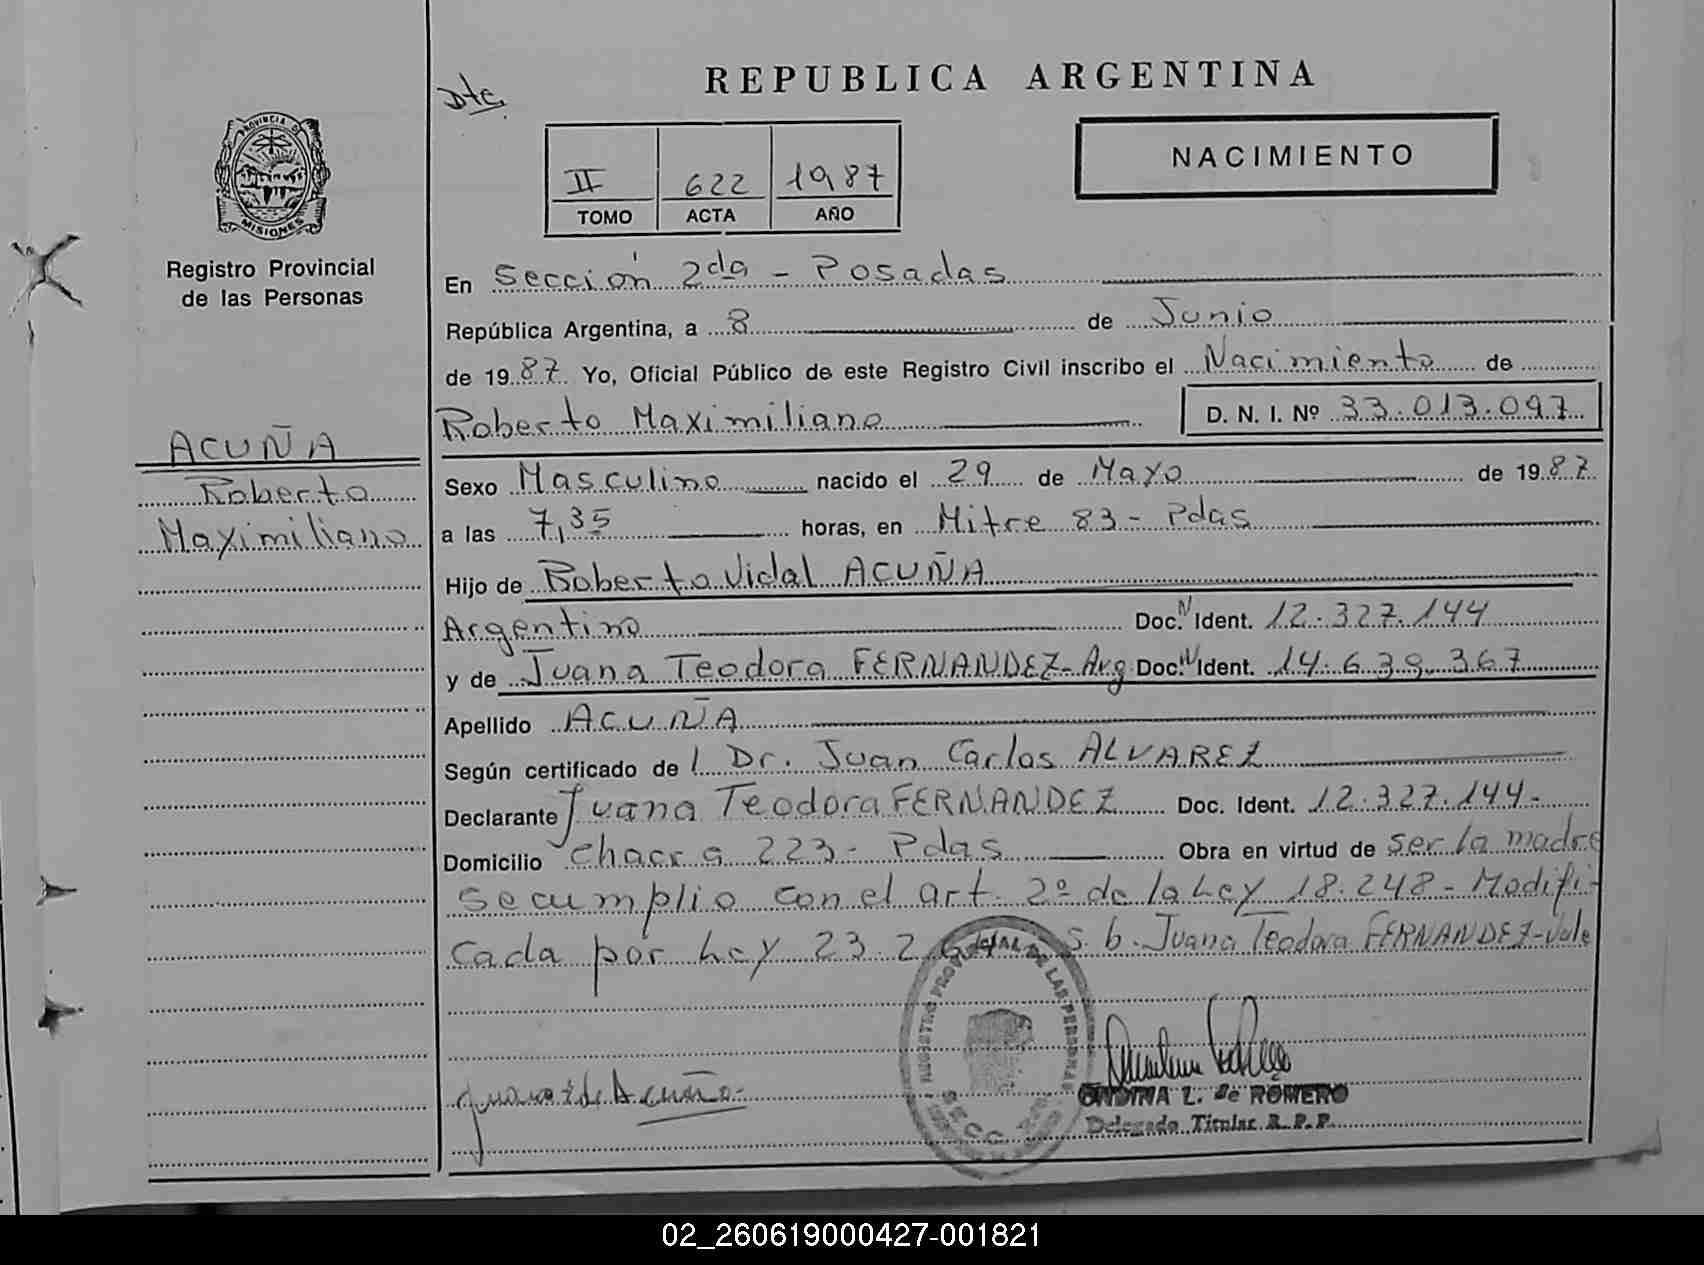 Dtc.
REPUBLICA ARGENTINA
PROVINCIA DE
MISIONES
II 622 1987
TOMO ACTA AÑO
NACIMIENTO
Registro Provincial
de las Personas
En Sección 2da - Posadas
República Argentina, a 8 de Junio
de 1987 Yo, Oficial Público de este Registro Civil inscribo el Nacimiento de
Roberto Maximiliano D. N. I. Nº 33.013.097
ACUÑA
Roberto
Maximiliano
Sexo Masculino nacido el 29 de Mayo de 1987
a las 7,35 horas, en Mitre 83 - Pdas
Hijo de Roberto Vidal ACUÑA
Argentino Doc. N Ident. 12.327.144
y de Juana Teodora FERNANDEZ - Arg Doc. N Ident. 14.639.367
Apellido ACUÑA
Según certificado de l Dr. Juan Carlos ALVAREZ
Declarante Juana Teodora FERNANDEZ Doc. Ident. 12.327.144-
Domicilio Chacra 223 - Pdas Obra en virtud de ser la madre
Se cumplio con el art. 2º de la Ley 18.248 - Modifi-
cada por Ley 23.2 S. b. Juana Teodora FERNANDEZ - Vale
REGISTRO PROVINCIAL DE LAS PERSONAS
SECC.
de Acuña
ONDINA L. de ROMERO
Delegada Titular R. P. P.
02_260619000427-001821